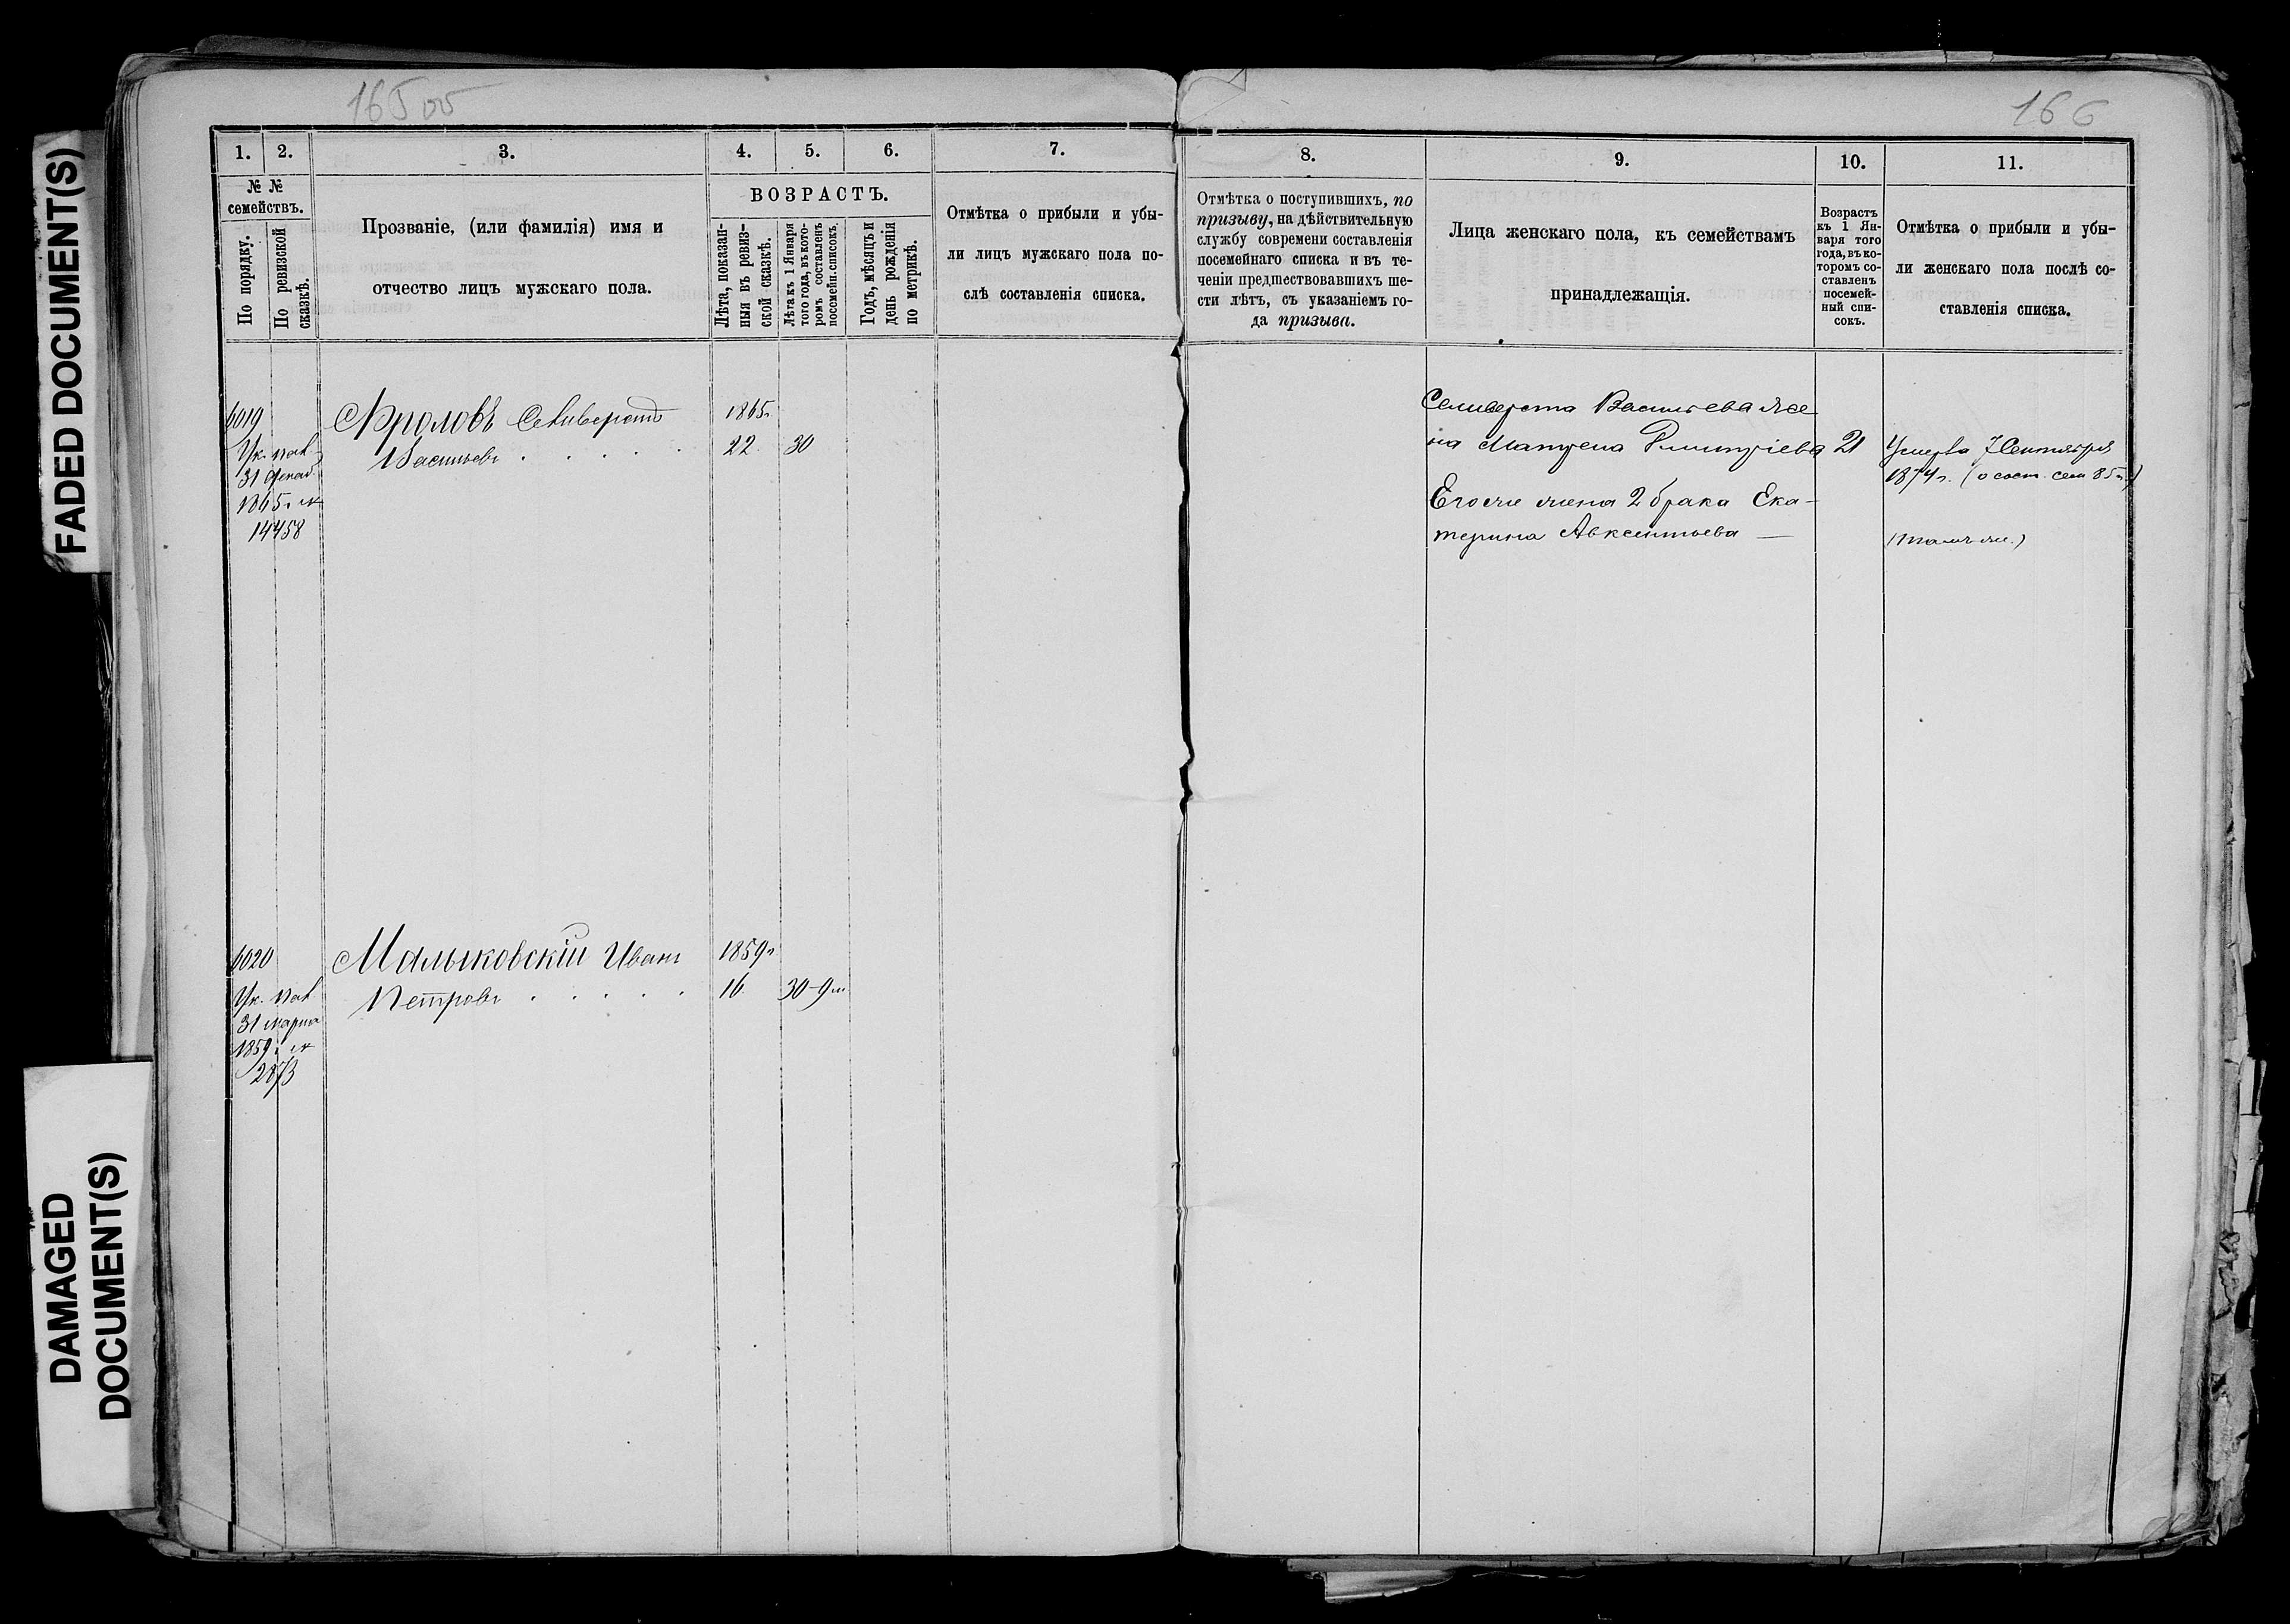 FADED DOCUMENT(S)
DAMAGED
DOCUMENT(S)
165 об
1.
2.
3.
4.
5.
6.
7.
№ №
семействъ.
По порядку.
По ревизской
сказкѣ.
Прозваніе, (или фамилія) имя и
отчество лицъ мужскаго пола.
ВОЗРАСТЪ.
Лѣта, показан-
ныя въ ревиз-
ской сказкѣ.
Лѣта къ 1 Января
того года, въ кото-
ромъ составленъ
посемейн. списокъ.
Годъ, мѣсяцъ и
день рожденія
по метрикѣ.
Отмѣтка о прибыли и убы-
ли лицъ мужскаго пола по-
слѣ составленія списка.
6019
Ук. пал.
31 декаб
1865 г. №
14458
Фроловъ Селиверстъ
Васильевъ . . . . .
1865г.
22.
30
6020
Ук. пал
31 марта
1859 г. №
2873
Малыковскій Иванъ
Петровъ . . . . .
1859г
16.
30-9м.
166
8.
9.
10.
11.
Отмѣтка о поступившихъ, по
призыву, на дѣйствительную
службу современи составленія
посемейнаго списка и въ те-
ченіи предшествовавшихъ ше-
сти лѣтъ, съ указаніемъ го-
да призыва.
Лица женскаго пола, къ семействамъ
принадлежащія.
Возрастъ
къ 1 Ян-
варя того
года, въ ко-
торомъ со-
ставленъ
посемей-
ный спи-
сокъ.
Отмѣтка о прибыли и убы-
ли женскаго пола послѣ со-
ставленія списка.
Селиверста Васильева же
на Матрена Дмитріева
21
Умерла 7 Сентября
1874 г. (о сост. сем 85 г.)
Его же жена 2 брака Ека-
терина Авксентьева —
(тамъ же.)